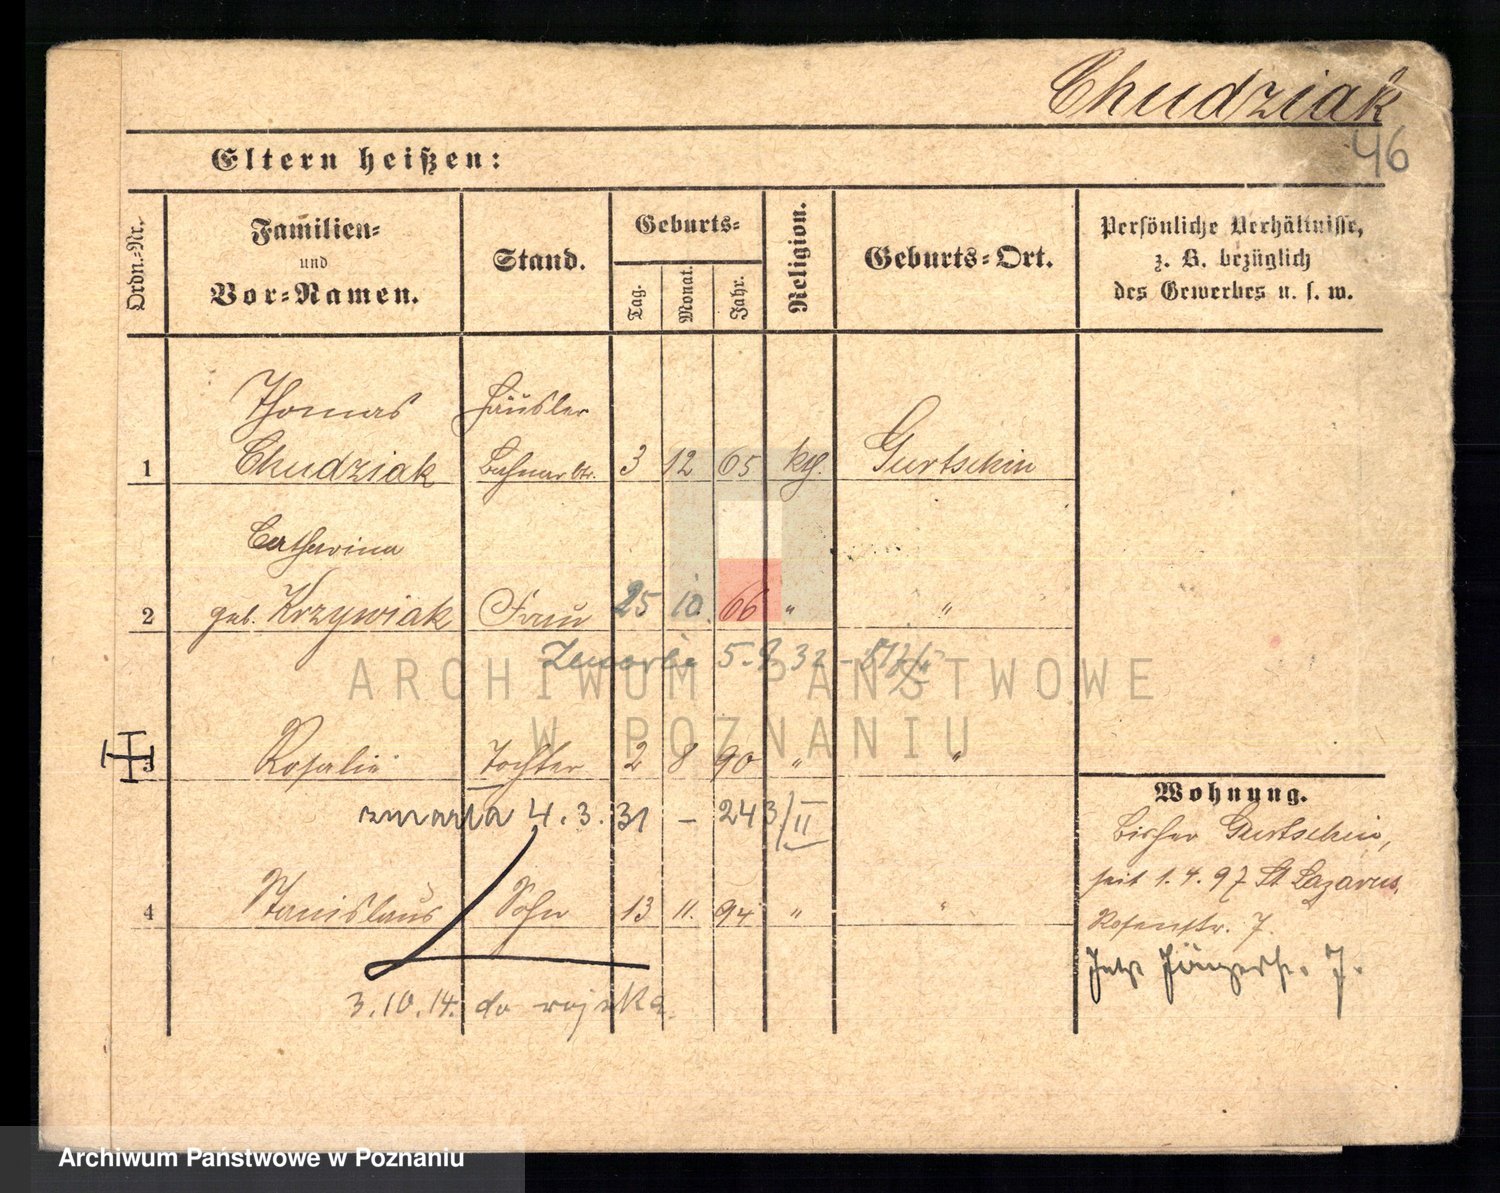 Chudziak
46
Eltern heißen:
Ordn.-Nr.
Familien-
und
Vor-Namen.
Stand.
Geburts-
Tag.
Monat.
Jahr.
Religion.
Geburts-Ort.
Persönliche Verhältnisse,
z. B. bezüglich
des Gewerbes u. s. w.
Thomas Häusler
1 Chudziak Bahnarbtr. 3 12 65 kth. Gurtschin
Catharina
2 geb. Krzywiak Frau 25 10. 66 " "
Zmarła 5. 32 -
3 Rosalie Tochter 2 8 90 " "
zmarła 4.3.31 - 243/II
4 Stanislaus Sohn 13 11. 94 " "
3.10.14. do wojska.
Wohnung.
Bisher Gurtschin,
seit 1.4.97 St Lazarus,
Rosenstr. 7.
Jetzt 7.
ARCHIWUM PAŃSTWOWE
W POZNANIU
Archiwum Państwowe w Poznaniu